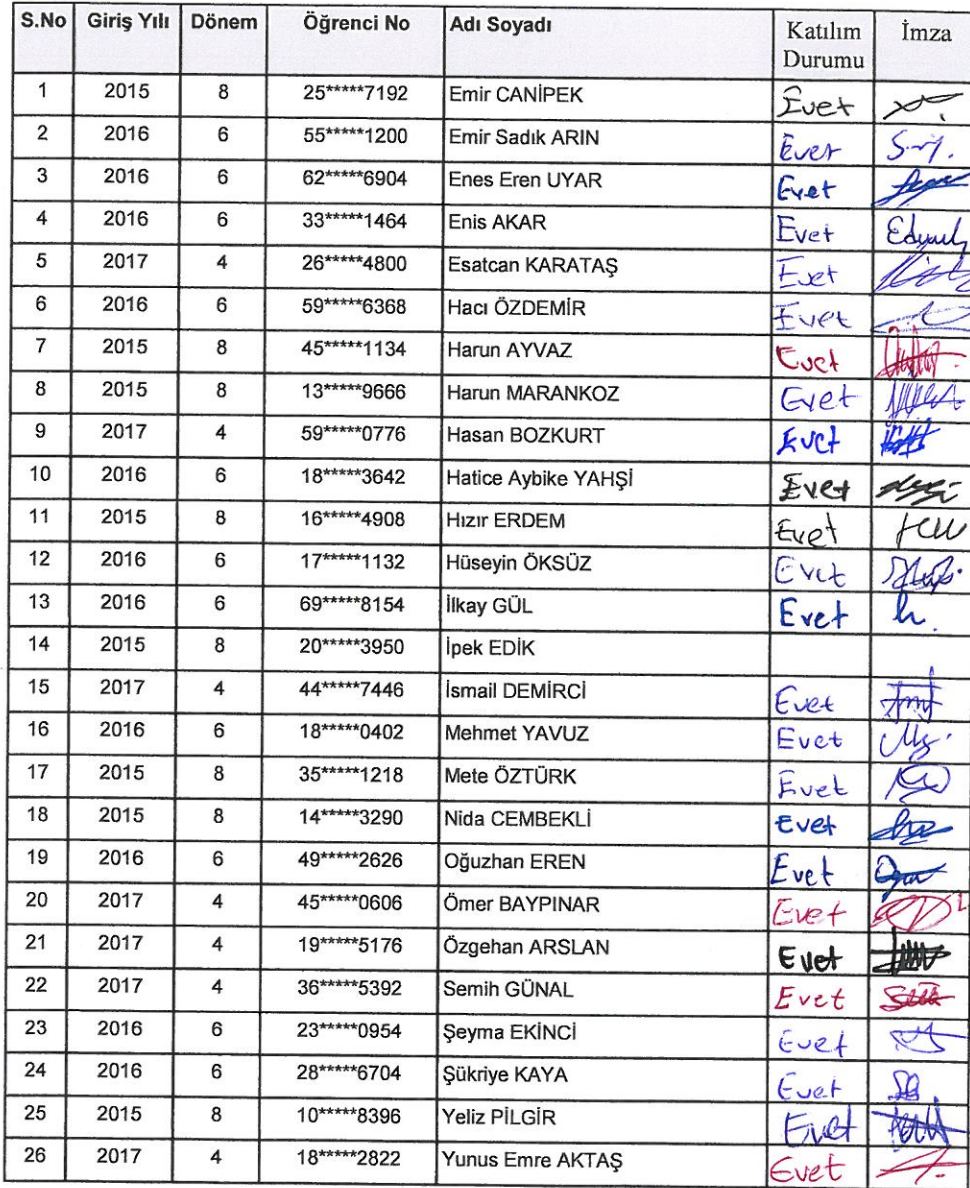 S.No Giriş Yılı Dönem Öğrenci No Adı Soyadı Katılım Durumu İmza
1 2015 8 25*****7192 Emir CANİPEK Evet
2 2016 6 55*****1200 Emir Sadık ARIN Evet
3 2016 6 62*****6904 Enes Eren UYAR Evet
4 2016 6 33*****1464 Enis AKAR Evet
5 2017 4 26*****4800 Esatcan KARATAŞ Evet
6 2016 6 59*****6368 Hacı ÖZDEMİR Evet
7 2015 8 45*****1134 Harun AYVAZ Evet
8 2015 8 13*****9666 Harun MARANKOZ Evet
9 2017 4 59*****0776 Hasan BOZKURT Evet
10 2016 6 18*****3642 Hatice Aybike YAHŞİ Evet
11 2015 8 16*****4908 Hızır ERDEM Evet
12 2016 6 17*****1132 Hüseyin ÖKSÜZ Evet
13 2016 6 69*****8154 İlkay GÜL Evet
14 2015 8 20*****3950 İpek EDİK
15 2017 4 44*****7446 İsmail DEMİRCİ Evet
16 2016 6 18*****0402 Mehmet YAVUZ Evet
17 2015 8 35*****1218 Mete ÖZTÜRK Evet
18 2015 8 14*****3290 Nida CEMBEKLİ Evet
19 2016 6 49*****2626 Oğuzhan EREN Evet
20 2017 4 45*****0606 Ömer BAYPINAR Evet
21 2017 4 19*****5176 Özgehan ARSLAN Evet
22 2017 4 36*****5392 Semih GÜNAL Evet
23 2016 6 23*****0954 Şeyma EKİNCİ Evet
24 2016 6 28*****6704 Şükriye KAYA Evet
25 2015 8 10*****8396 Yeliz PİLGİR Evet
26 2017 4 18*****2822 Yunus Emre AKTAŞ Evet